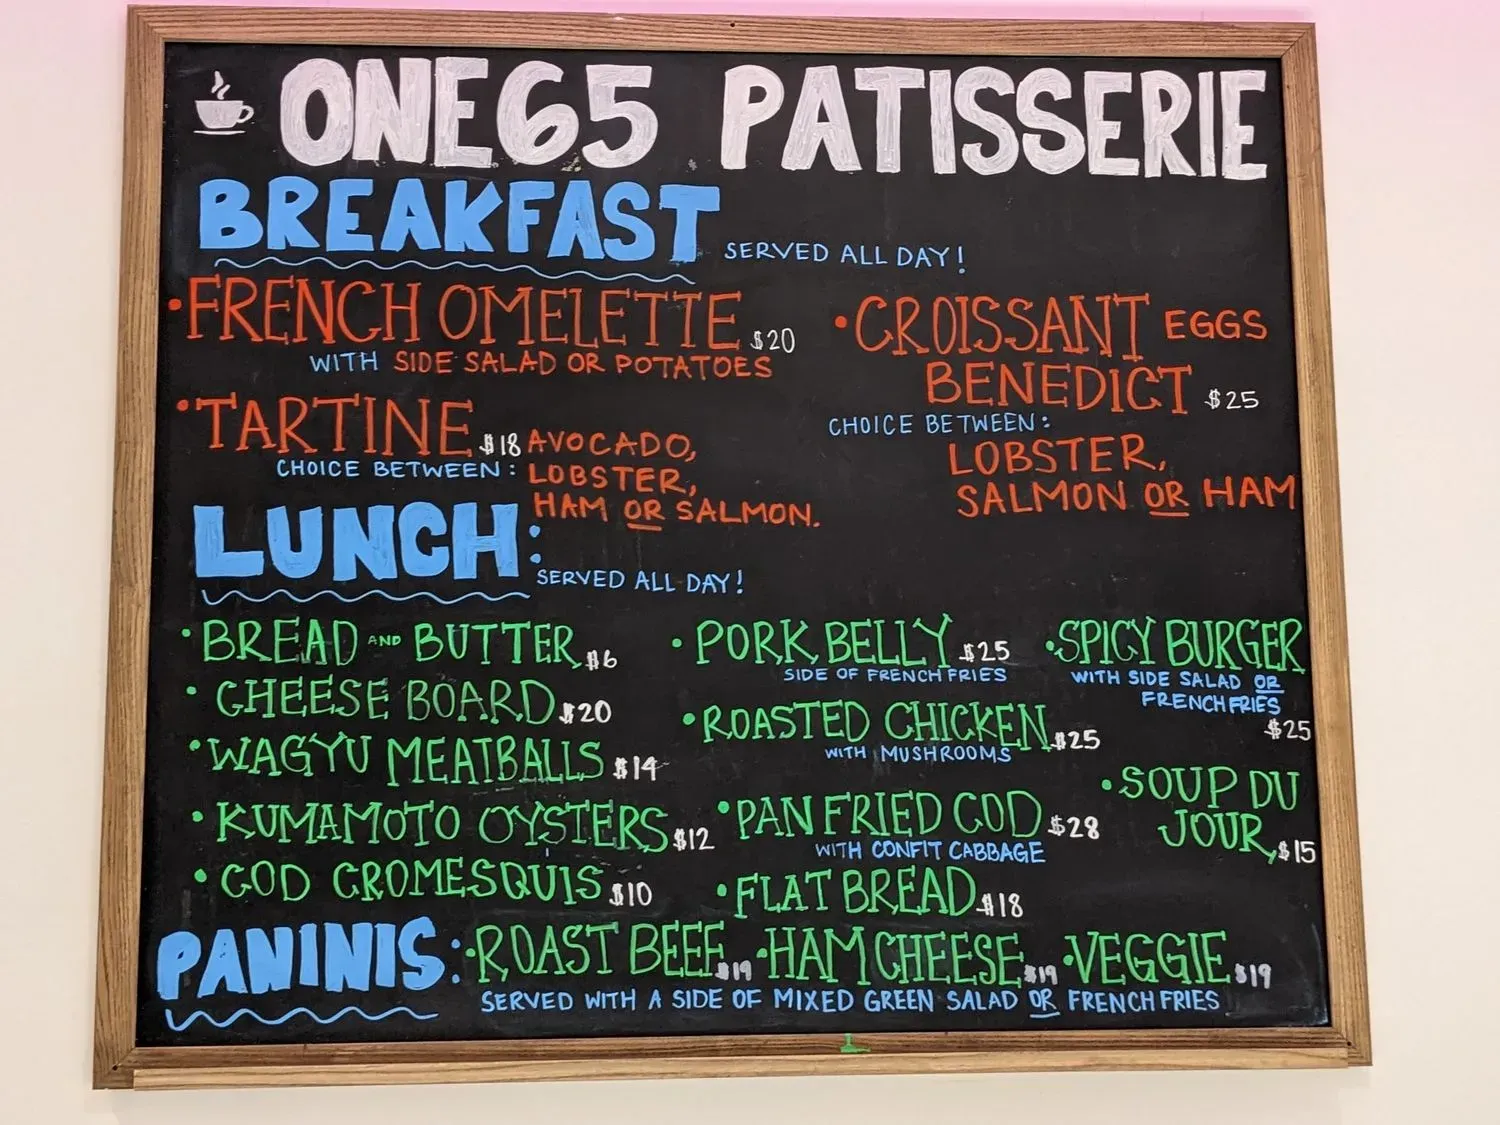 ONE65 PATISSERIE
BREAKFAST SERVED ALL DAY!
• FRENCH OMELETTE $20
WITH SIDE SALAD OR POTATOES
• TARTINE $18 AVOCADO,
CHOICE BETWEEN: LOBSTER,
HAM OR SALMON.
• CROISSANT EGGS
BENEDICT $25
CHOICE BETWEEN:
LOBSTER,
SALMON OR HAM
LUNCH:
SERVED ALL DAY!
• BREAD AND BUTTER $6
• CHEESE BOARD $20
• WAGYU MEATBALLS $14
• KUMAMOTO OYSTERS $12
• COD CROMESQUIS $10
• PORK BELLY $25
SIDE OF FRENCH FRIES
• ROASTED CHICKEN $25
WITH MUSHROOMS
• PAN FRIED COD $28
WITH CONFIT CABBAGE
• FLAT BREAD $18
• SPICY BURGER
WITH SIDE SALAD OR
FRENCH FRIES
$25
• SOUP DU
JOUR, $15
PANINIS: • ROAST BEEF $19 • HAM CHEESE $19 • VEGGIE $19
SERVED WITH A SIDE OF MIXED GREEN SALAD OR FRENCH FRIES